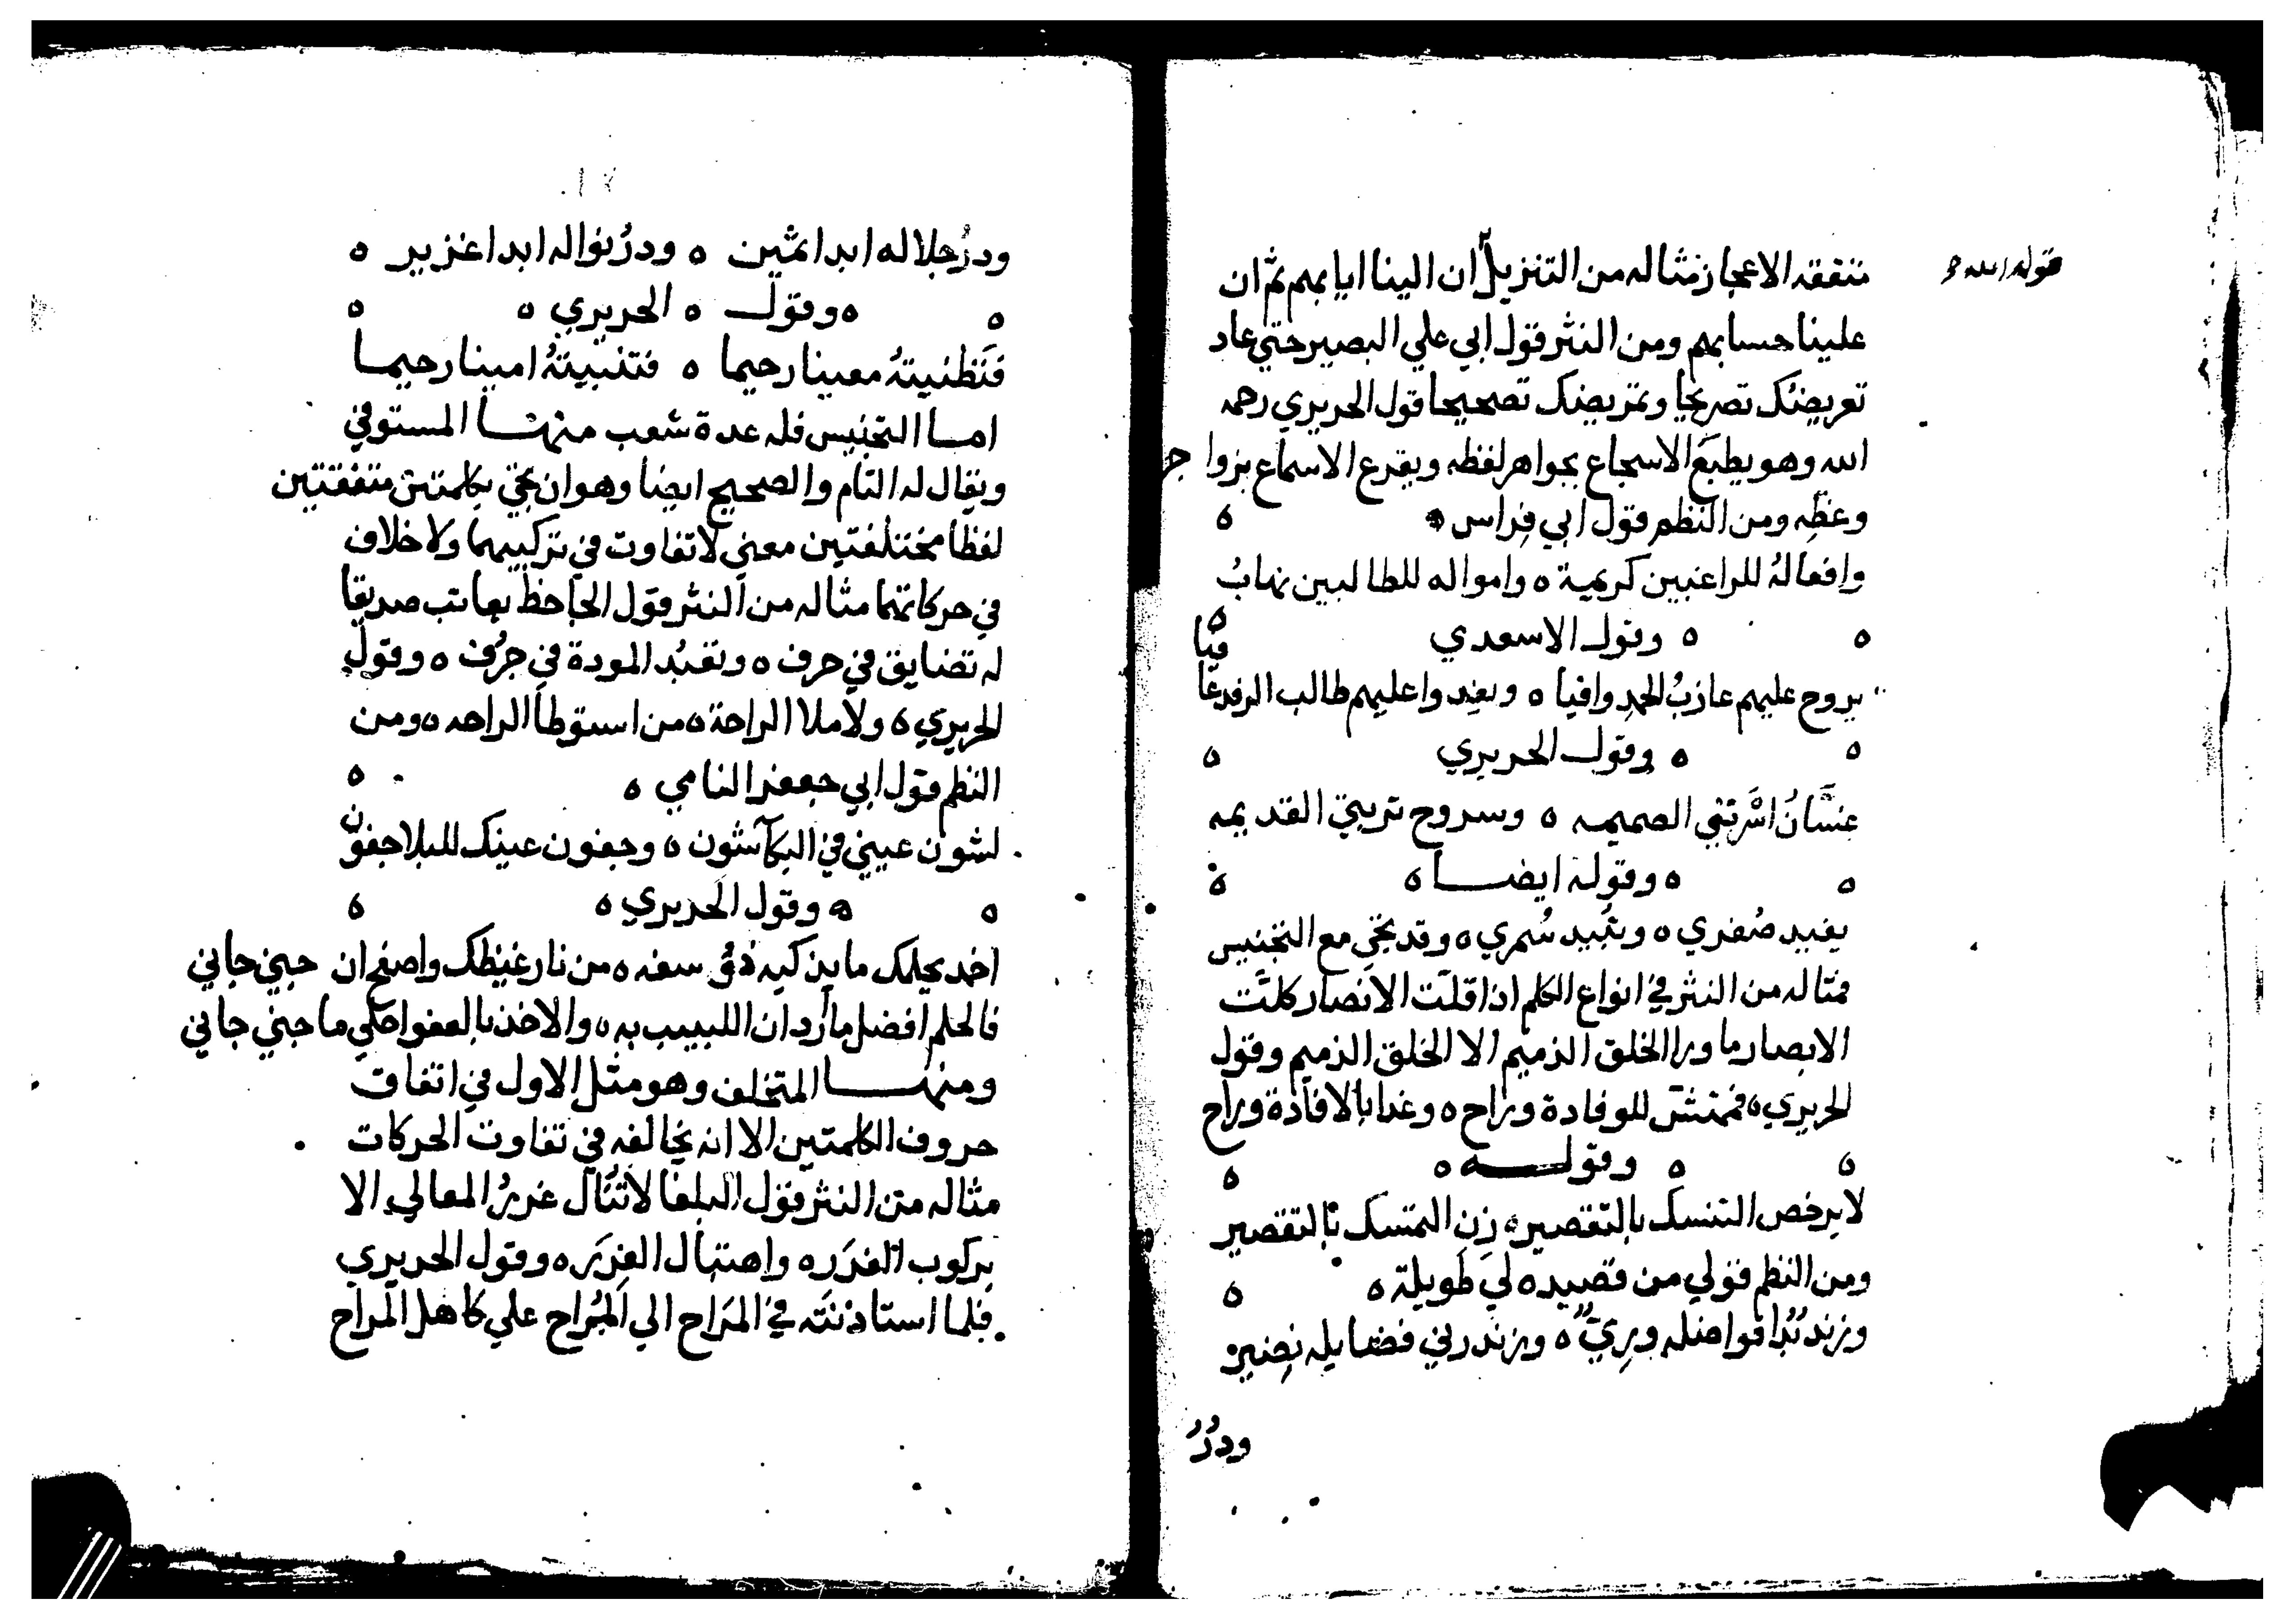 متفقه الاعجاز مثاله من التنزيل ان الينا ايابهم ثم ان
قوله
علينا حسابهم ومن النثر قول ابي علي البصير حتي عاد
تعريضك تصريحا وتمريضك تصحيحا قول الحريري رحمه
الله وهو يطبع الاسجاع بجواهر لفظه ويقرع الاسماع بزواجر
وعظه ومن النظم قول ابي فراس ه
وافعاله للراغبين كريمة ه وامواله للطالبين نهاب
ه وقول الاسعدي
يروح عليهم عازب الحمد وافيا ه ويغدوا عليهم طالب الرفد عافيا
ه وقول الحريري
غسان اسرتي الصميمه ه وسروج تربتي القديمه
ه وقوله ايضا ه
يفيد صفري ه ويبيد سمري ه وقد يجي مع التجنيس
مثاله من النثر في انواع الكلم اذا قلت الانصار كلت
الابصار ما ورا الخلق الذميم الا الخلق الذميم وقول
الحريري ه فمتش للوفادة وراح ه وغدا بالافادة وراح
ه وقوله ه
لا يرخص التنسك بالتقصير ه زن التمسك بالتقصير
ومن النظم قولي من قصيده لي طويلة ه
وزند ندا فواضله وري ه ورند ربي فضايله نضير
ودر
ودر جلاله ابدا ثمين ه ودر نواله ابدا غزير ه
ه وقول ه الحريري ه
فتظنيته معينا رحيما ه فتنبيته امينا رحيما
اما التجنيس فله عدة شعب منها المستوفي
ويقال له التام والصحيح ايضا وهو ان يجي بكلمتين متفقتين
لفظا مختلفتين معني لا تفاوت في تركيبهما ولا خلاف
في حركاتهما مثاله من النثر قول الجاحظ يعاتب صديقا
له تضايق في حرف ه وتعبد المودة في جرف ه وقول
الحريري ه ولا ملا الراحة ه من استوطا الراحه ه ومن
النظم قول ابي جعفر النامي ه
لشون عيني في البكا شون ه وجفون عينك للبلا جفون
ه وقول الحريري ه
اخد بحلمك ما يذكيه ذو سفه ه من نار غيظك واصفح ان جني جاني
فالحلم افضل ما ازدان اللبيب به ه والاخذ بالعفو احلي ما جني جاني
ومنها المتخلف وهو مثل الاول في اتفاق
حروف الكلمتين الا انه يخالفه في تفاوت الحركات
مثاله من النثر قول البلغا لا تنال غرر المعالي الا
بركوب الغرر ه واهتبال الغرر ه وقول الحريري
فلما استاذنته في المراح الي المراح علي كاهل المراح